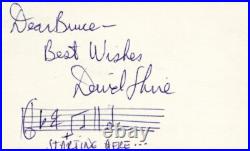 Dear Bruce—
Best Wishes
David Shire
STARTING HERE...